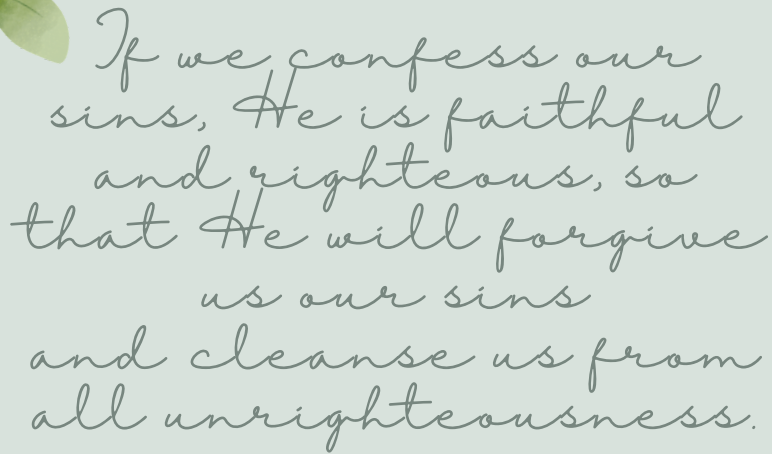 If we confess our
sins, He is faithful
and righteous, so
that He will forgive
us our sins
and cleanse us from
all unrighteousness.